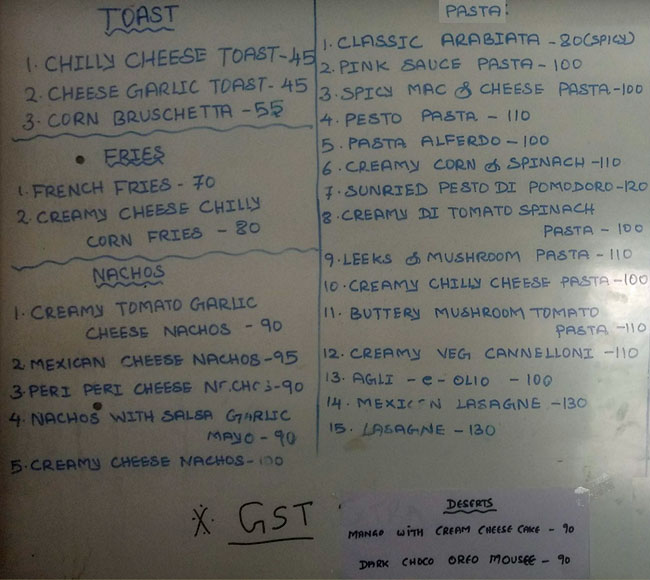 TOAST
1. CHILLY CHEESE TOAST-45
2. CHEESE GARLIC TOAST-45
3. CORN BRUSCHETTA -55
FRIES
1. FRENCH FRIES - 70
2. CREAMY CHEESE CHILLY
CORN FRIES - 80
NACHOS
1. CREAMY TOMATO GARLIC
CHEESE NACHOS - 90
2. MEXICAN CHEESE NACHOS-95
3. PERI PERI CHEESE -90
4. NACHOS WITH SALSA GARLIC
MAYO - 90
5. CREAMY CHEESE NACHOS-100
PASTA:
1. CLASSIC ARABIATA -80(SPICY)
2. PINK SAUCE PASTA -100
3. SPICY MAC & CHEESE PASTA-100
4. PESTO PASTA - 110
5. PASTA ALFERDO -100
6. CREAMY CORN & SPINACH -110
7. SUNRIED PESTO DI POMODORO-120
8. CREAMY DI TOMATO SPINACH
PASTA - 100
9. LEEKS & MUSHROOM PASTA - 110
10. CREAMY CHILLY CHEESE PASTA-100
11. BUTTERY MUSHROOM TOMATO
PASTA -110
12. CREAMY VEG CANNELLONI -110
13. AGLI -e- OLIO - 100
14. MEXICAN LASAGNE -130
15. LASAGNE -130
* GST
DESERTS
MANGO WITH CREAM CHEESE CAKE - 90
DARK CHOCO OREO MOUSEE - 90